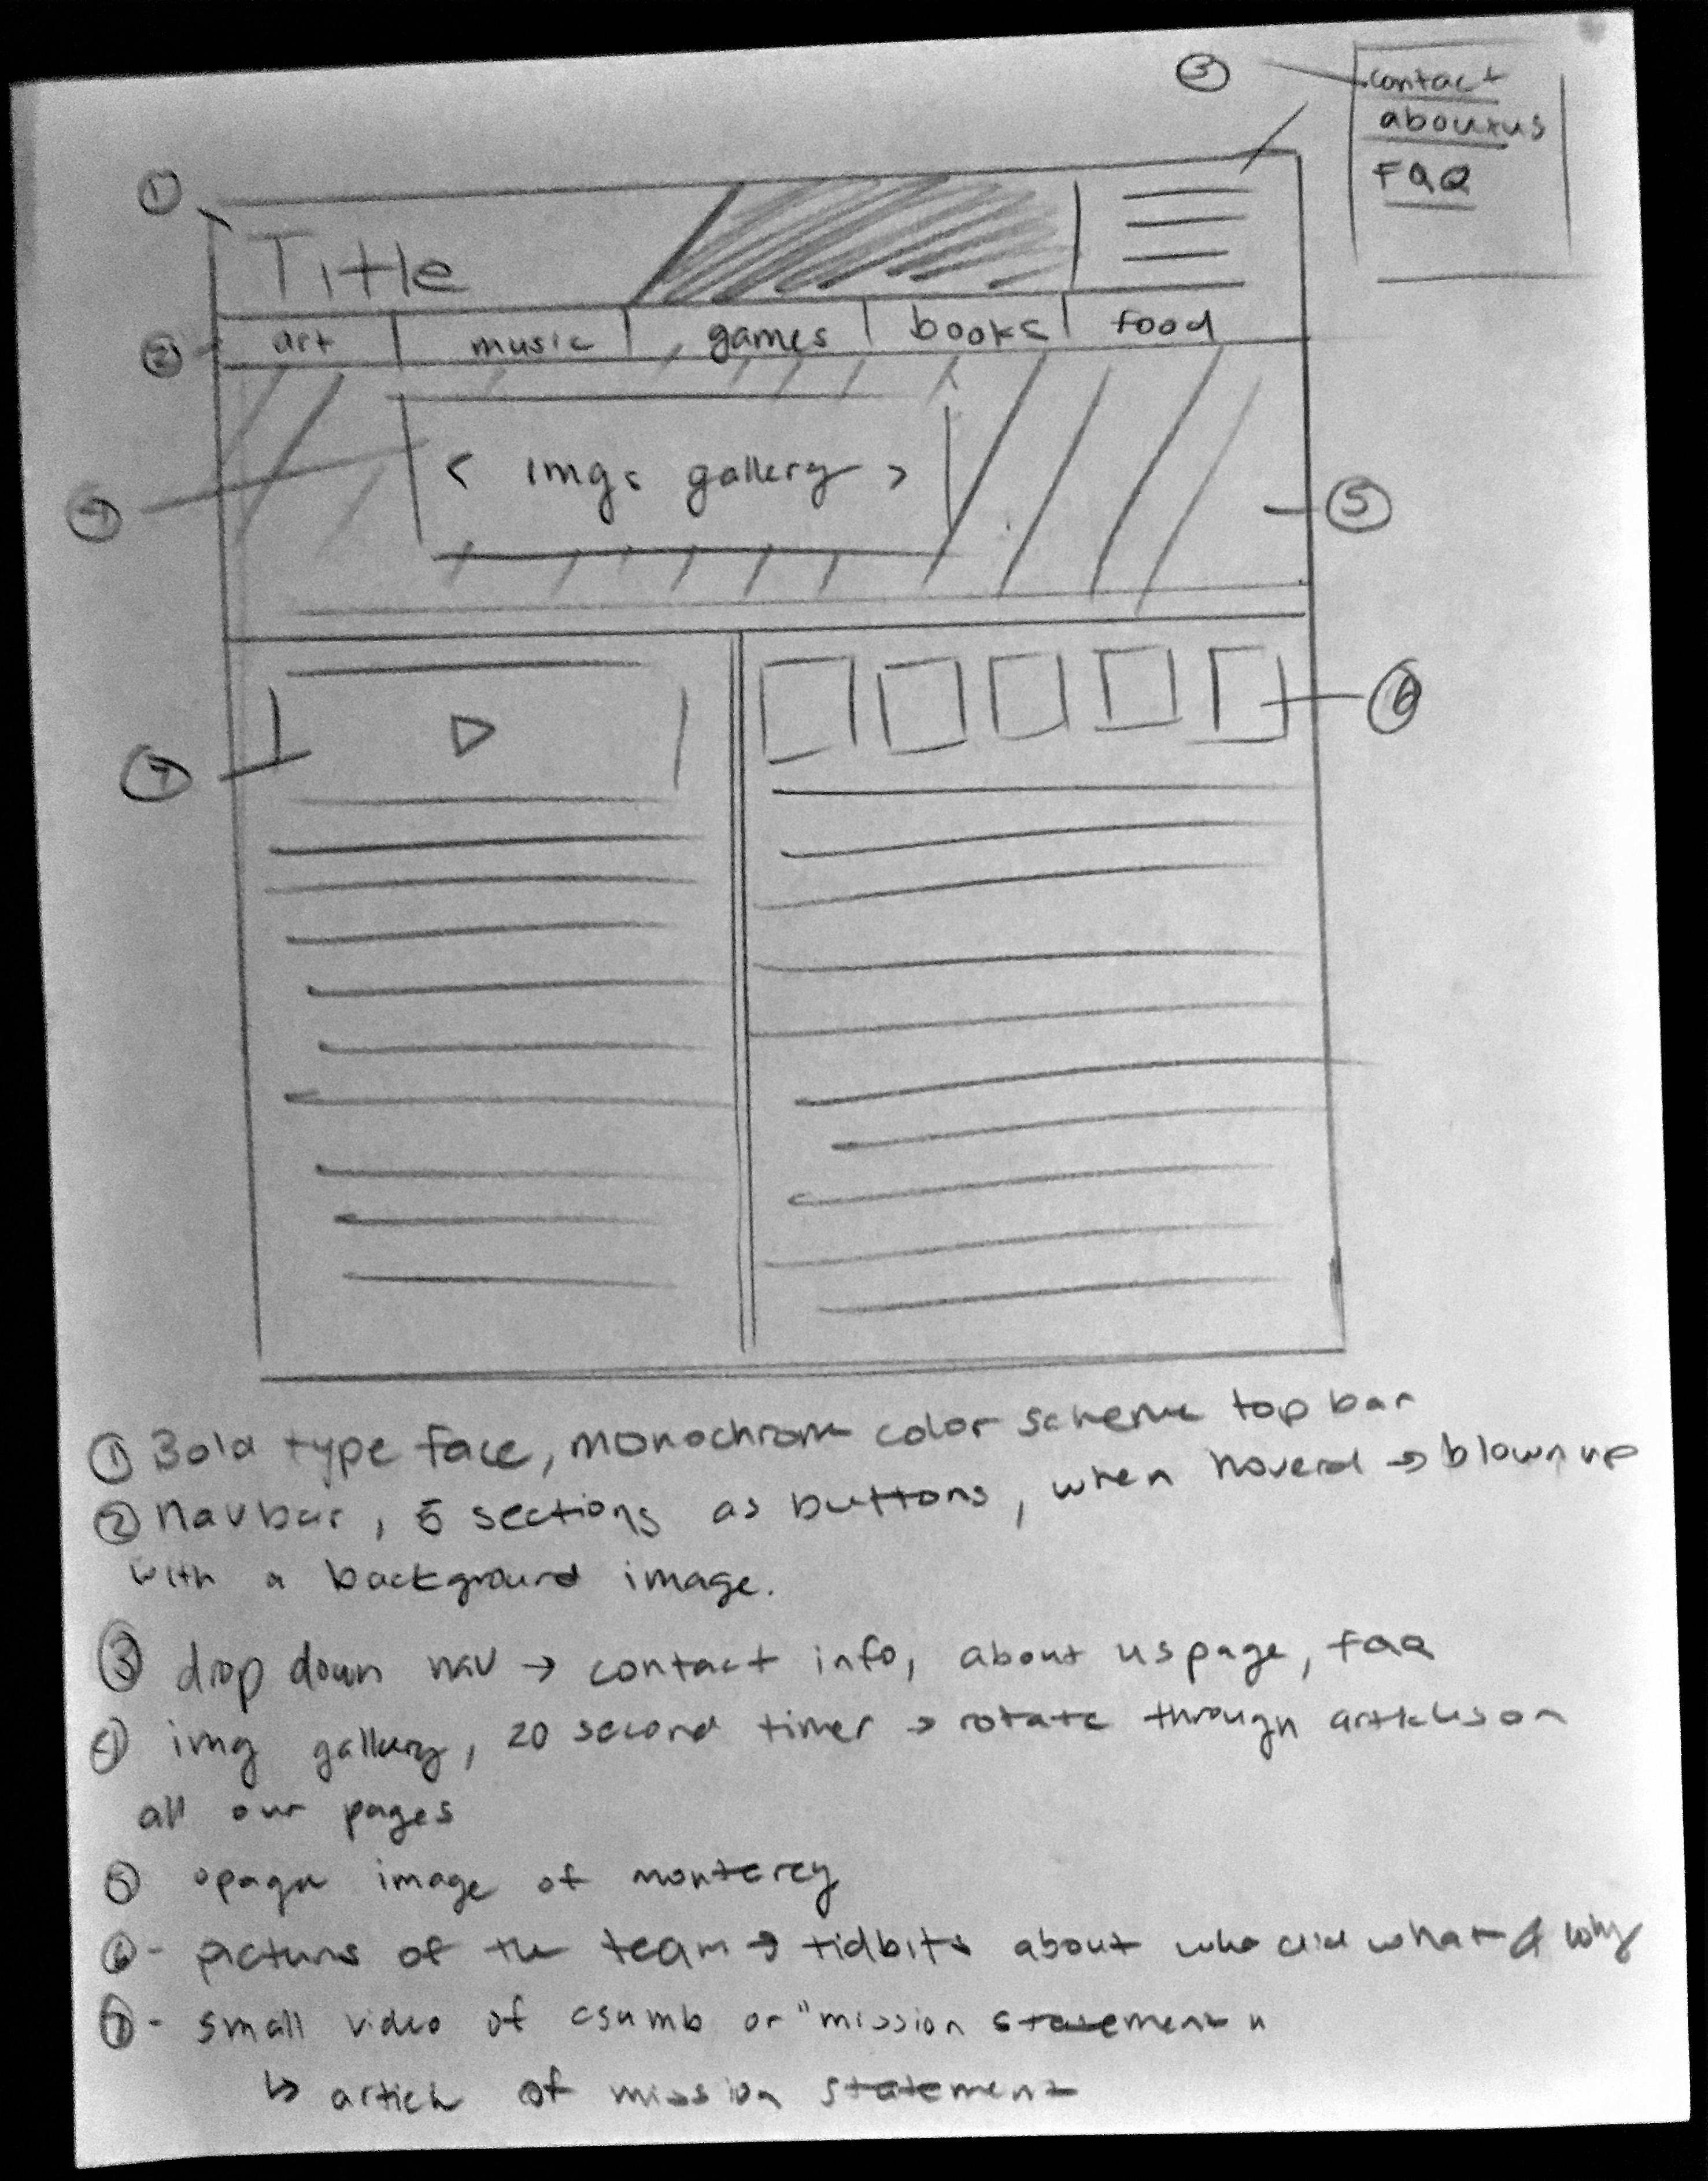 ③
contact
about us
FAQ
①
Title
② art | music | games | books | food
④ < imgs gallery > ⑤
⑥
⑦
① Bold type face, monochrom color scheme top bar
② navbar, 5 sections as buttons, when hovered → blown up
with a background image.
③ drop down nav → contact info, about us page, FAQ
④ img gallery, 20 second timer → rotate through articles on
all our pages
⑤ opaque image of monterey
⑥ - pictures of the team → tidbits about who did what & why
⑦ - small video of csumb or "mission statement"
↳ article of mission statement